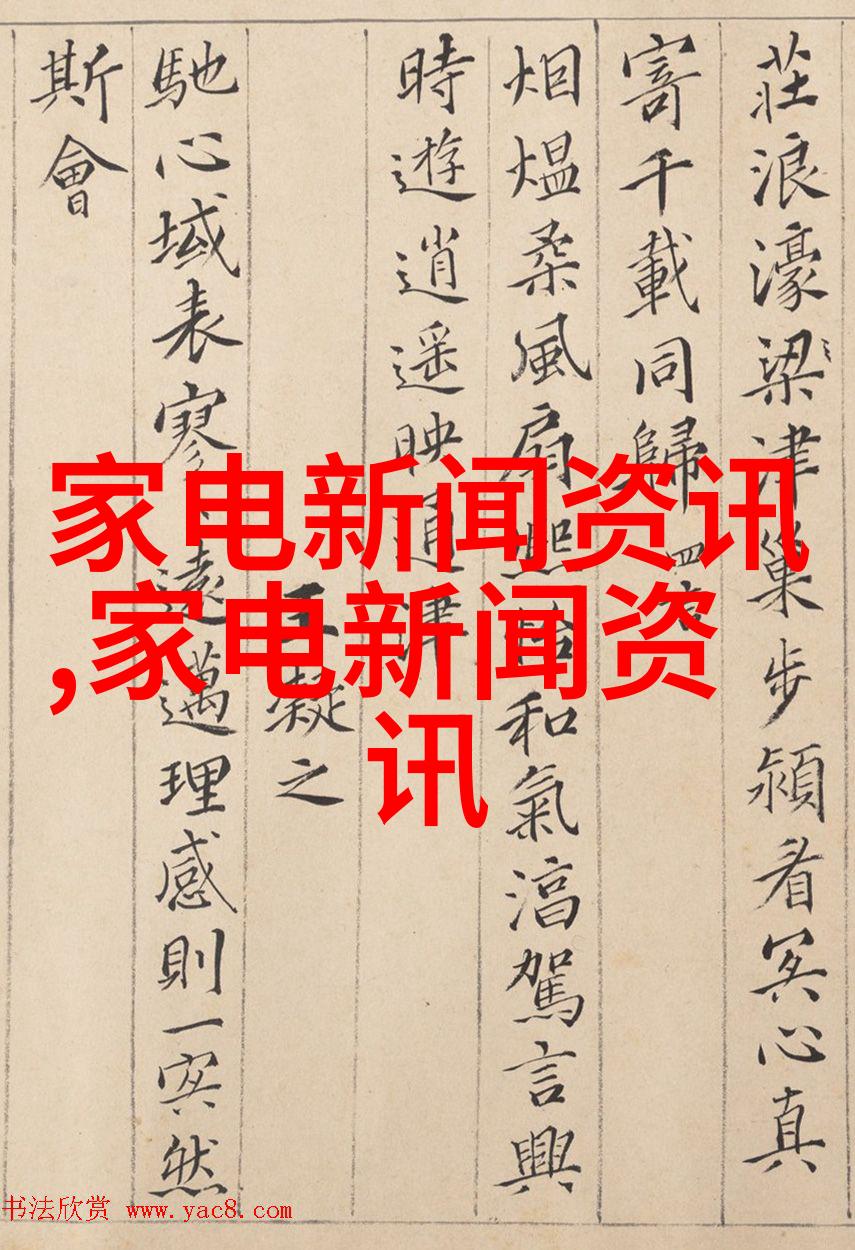 莊浪濠梁津巢步潁看冥心真
寄千載同歸 四言
烟熅柔風扇熙怡和氣淯駕言興
時遊逍遥映通津
王凝之
馳心域表寥〻遠邁理感則一冥然
斯會
家电新闻资讯
,家电新闻资
讯
书法欣赏 www.yac8.com